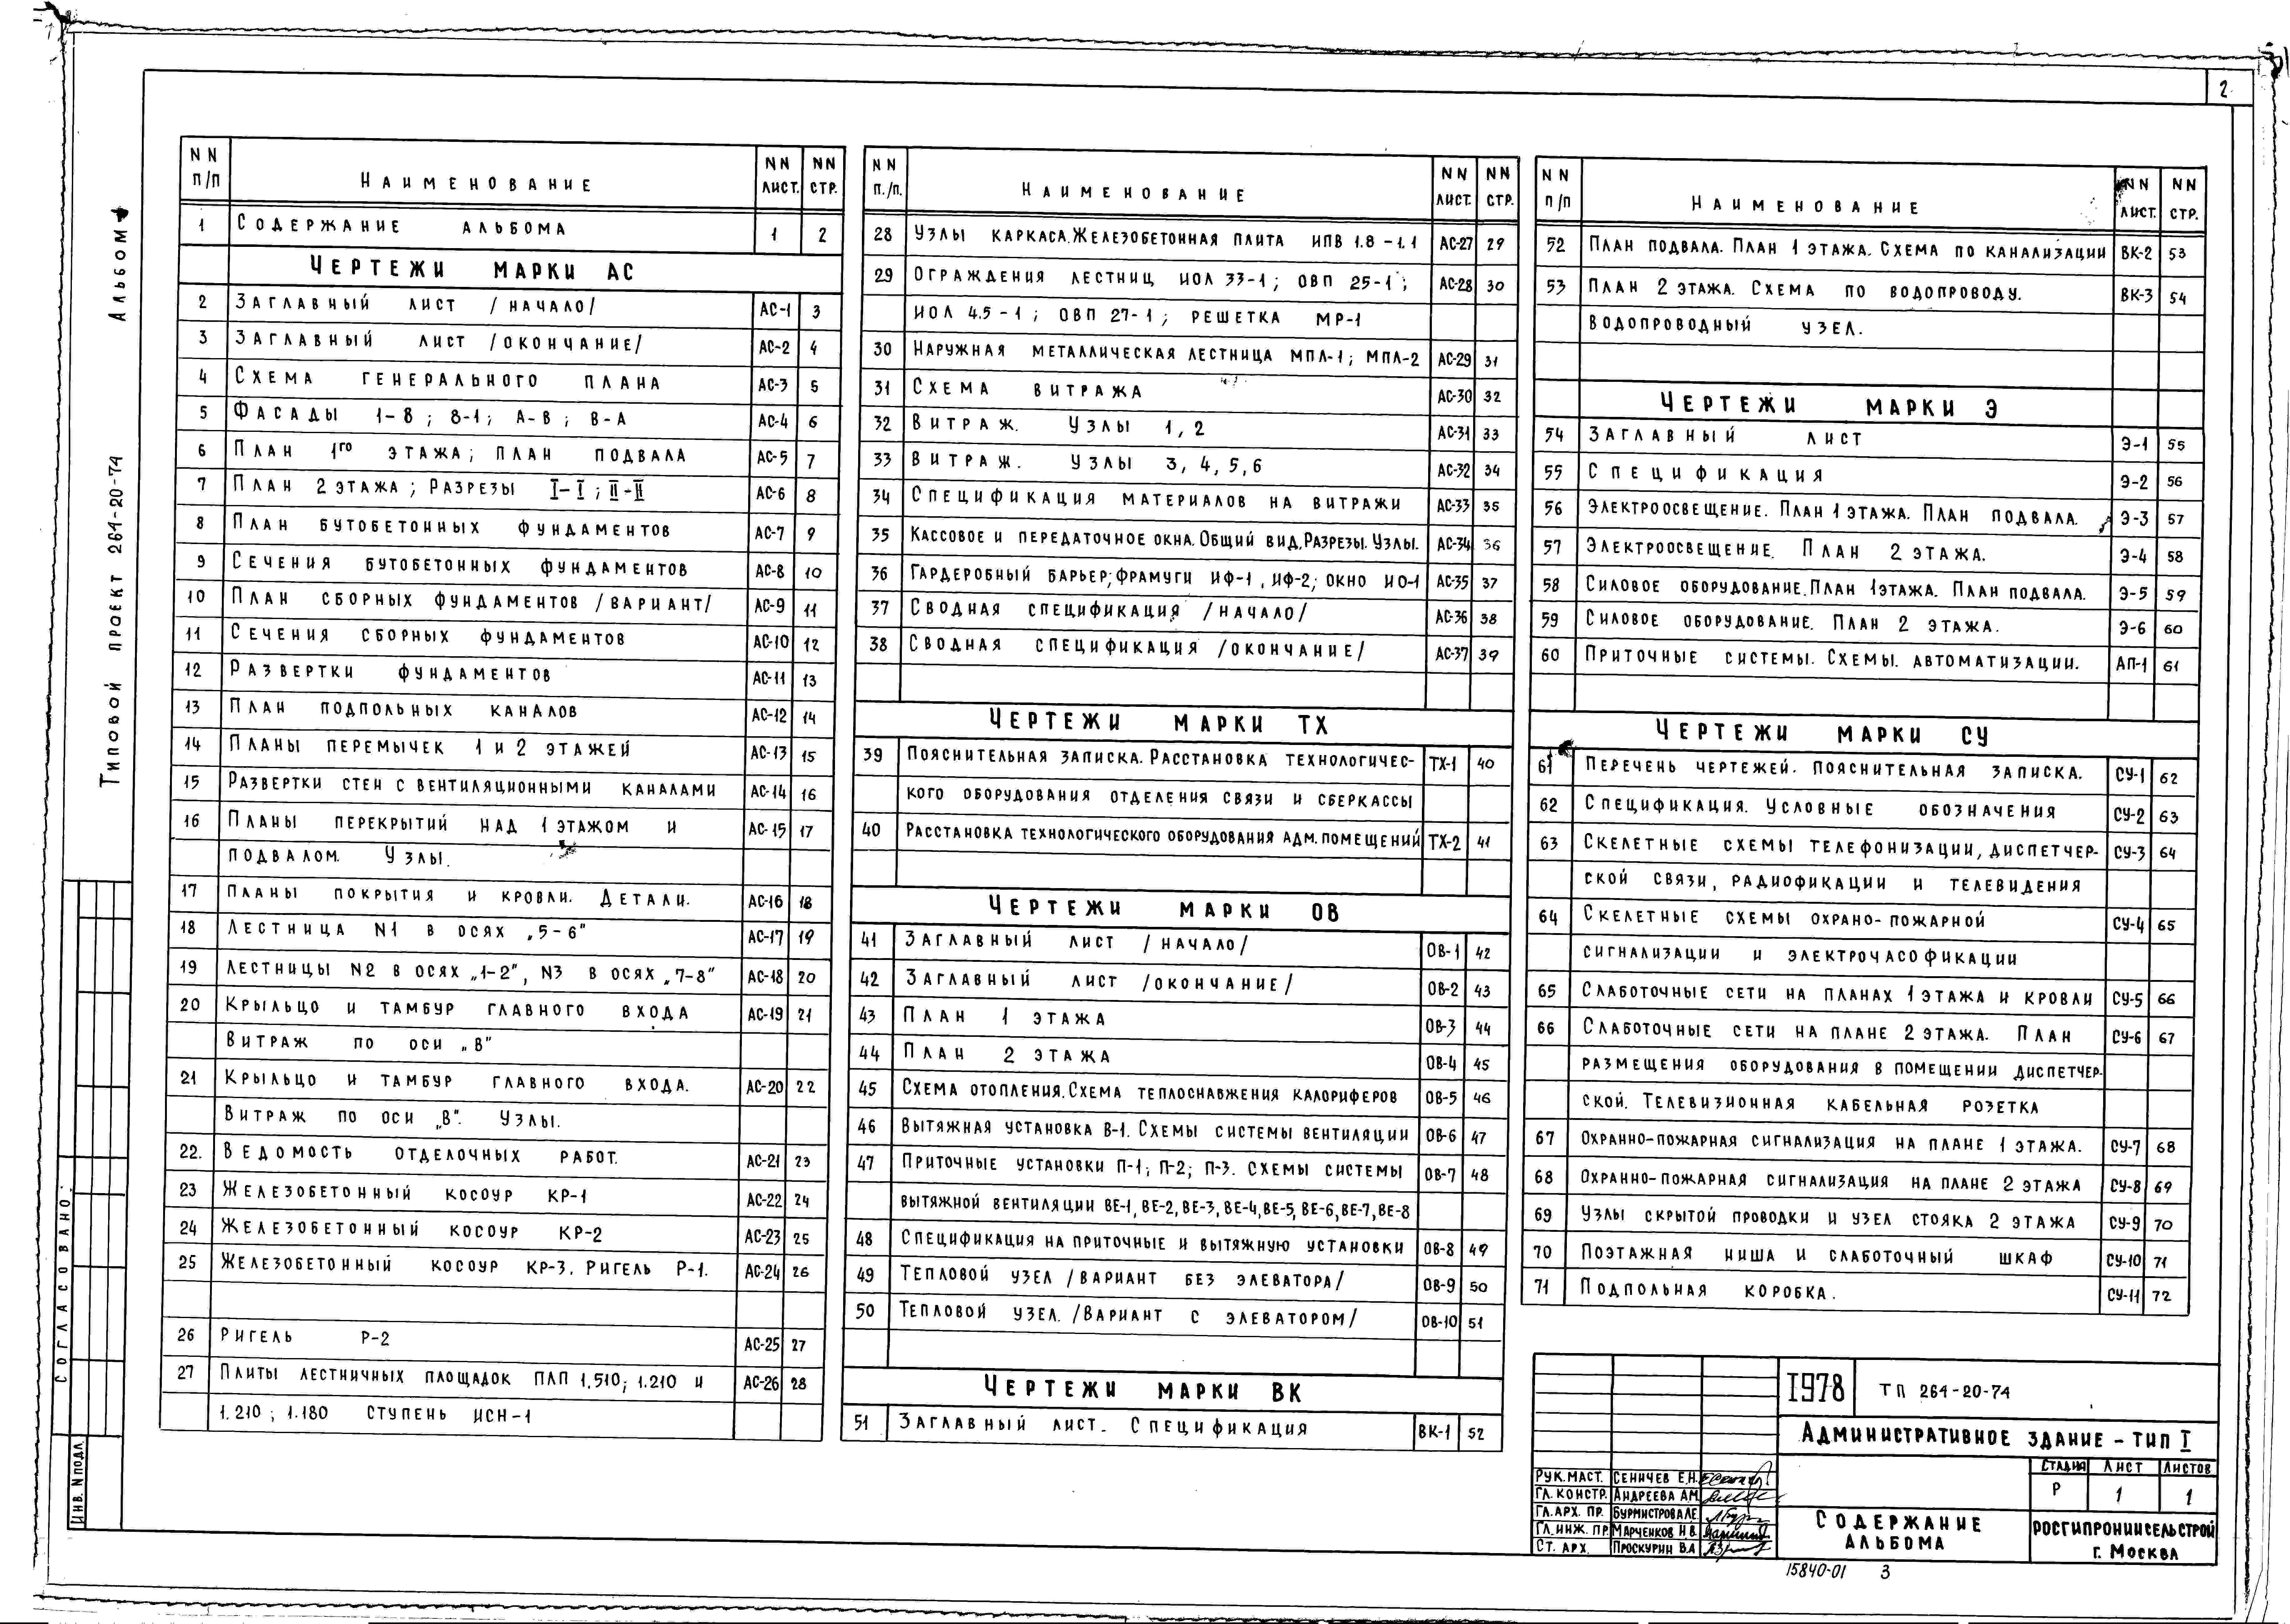 2
Альбом 1
Типовой проект 264-20-74
Согласовано:
Инв. N подл.
NN п/п Наименование NN лист. NN стр.
1 Содержание альбома 1 2
Чертежи марки АС
2 Заглавный лист /начало/ АС-1 3
3 Заглавный лист /окончание/ АС-2 4
4 Схема генерального плана АС-3 5
5 Фасады 1-8; 8-1; А-В; В-А АС-4 6
6 План 1го этажа; план подвала АС-5 7
7 План 2 этажа; Разрезы I-I; II-II АС-6 8
8 План бутобетонных фундаментов АС-7 9
9 Сечения бутобетонных фундаментов АС-8 10
10 План сборных фундаментов /вариант/ АС-9 11
11 Сечения сборных фундаментов АС-10 12
12 Развертки фундаментов АС-11 13
13 План подпольных каналов АС-12 14
14 Планы перемычек 1 и 2 этажей АС-13 15
15 Развертки стен с вентиляционными каналами АС-14 16
16 Планы перекрытий над 1 этажом и АС-15 17
подвалом. Узлы.
17 Планы покрытия и кровли. Детали. АС-16 18
18 Лестница N1 в осях „5-6" АС-17 19
19 Лестницы N2 в осях „1-2", N3 в осях „7-8" АС-18 20
20 Крыльцо и тамбур главного входа АС-19 21
Витраж по оси „В"
21 Крыльцо и тамбур главного входа. АС-20 22
Витраж по оси „В". Узлы.
22. Ведомость отделочных работ. АС-21 23
23 Железобетонный косоур КР-1 АС-22 24
24 Железобетонный косоур КР-2 АС-23 25
25 Железобетонный косоур КР-3. Ригель Р-1. АС-24 26
26 Ригель Р-2 АС-25 27
27 Плиты лестничных площадок ПЛП 1.510; 1.210 и АС-26 28
1.210; 1.180 ступень ИСН-1
NN п./п. Наименование NN лист. NN стр.
28 Узлы каркаса. Железобетонная плита ИПВ 1.8-1.1 АС-27 29
29 Ограждения лестниц ИОЛ 33-1; ОВП 25-1; АС-28 30
ИОЛ 4.5-1; ОВП 27-1; решетка МР-1
30 Наружная металлическая лестница МПЛ-1; МПЛ-2 АС-29 31
31 Схема витража АС-30 32
32 Витраж. Узлы 1, 2 АС-31 33
33 Витраж. Узлы 3, 4, 5, 6 АС-32 34
34 Спецификация материалов на витражи АС-33 35
35 Кассовое и передаточное окна. Общий вид. Разрезы. Узлы. АС-34 36
36 Гардеробный барьер; фрамуги ИФ-1, ИФ-2; окно ИО-1 АС-35 37
37 Сводная спецификация /начало/ АС-36 38
38 Сводная спецификация /окончание/ АС-37 39
Чертежи марки ТХ
39 Пояснительная записка. Расстановка технологичес- ТХ-1 40
кого оборудования отделения связи и сберкассы
40 Расстановка технологического оборудования адм. помещений ТХ-2 41
Чертежи марки ОВ
41 Заглавный лист /начало/ ОВ-1 42
42 Заглавный лист /окончание/ ОВ-2 43
43 План 1 этажа ОВ-3 44
44 План 2 этажа ОВ-4 45
45 Схема отопления. Схема теплоснавжения калориферов ОВ-5 46
46 Вытяжная установка В-1. Схемы системы вентиляции ОВ-6 47
47 Приточные установки П-1; П-2; П-3. Схемы системы ОВ-7 48
вытяжной вентиляции ВЕ-1, ВЕ-2, ВЕ-3, ВЕ-4, ВЕ-5, ВЕ-6, ВЕ-7, ВЕ-8
48 Спецификация на приточные и вытяжную установки ОВ-8 49
49 Тепловой узел /вариант без элеватора/ ОВ-9 50
50 Тепловой узел. /Вариант с элеватором/ ОВ-10 51
Чертежи марки ВК
51 Заглавный лист. Спецификация ВК-1 52
NN п/п Наименование NN лист. NN стр.
52 План подвала. План 1 этажа. Схема по канализации ВК-2 53
53 План 2 этажа. Схема по водопроводу. ВК-3 54
Водопроводный узел.
Чертежи марки Э
54 Заглавный лист Э-1 55
55 Спецификация Э-2 56
56 Электроосвещение. План 1 этажа. План подвала. Э-3 57
57 Электроосвещение. План 2 этажа. Э-4 58
58 Силовое оборудование. План 1 этажа. План подвала. Э-5 59
59 Силовое оборудование. План 2 этажа. Э-6 60
60 Приточные системы. Схемы. автоматизации. АП-1 61
Чертежи марки СУ
61 Перечень чертежей. Пояснительная записка. СУ-1 62
62 Спецификация. Условные обозначения СУ-2 63
63 Скелетные схемы телефонизации, диспетчер- СУ-3 64
ской связи, радиофикации и телевидения
64 Скелетные схемы охрано-пожарной СУ-4 65
сигнализации и электрочасофикации
65 Слаботочные сети на планах 1 этажа и кровли СУ-5 66
66 Слаботочные сети на плане 2 этажа. План СУ-6 67
размещения оборудования в помещении диспетчер-
ской. Телевизионная кабельная розетка
67 Охранно-пожарная сигнализация на плане 1 этажа. СУ-7 68
68 Охранно-пожарная сигнализация на плане 2 этажа СУ-8 69
69 Узлы скрытой проводки и узел стояка 2 этажа СУ-9 70
70 Поэтажная ниша и слаботочный шкаф СУ-10 71
71 Подпольная коробка. СУ-11 72
1978 ТП 264-20-74
Административное здание - тип I
Стадия Лист Листов
Р 1 1
Рук. маст. Сеничев Е.Н.
Гл. констр. Андреева А.М.
Гл. арх. пр. Бурмистрова Л.Е.
Гл. инж. пр. Марченков Н.В.
Ст. арх. Проскурин В.А
Содержание
альбома
Росгипрониисельстрой
г. Москва
15840-01 3